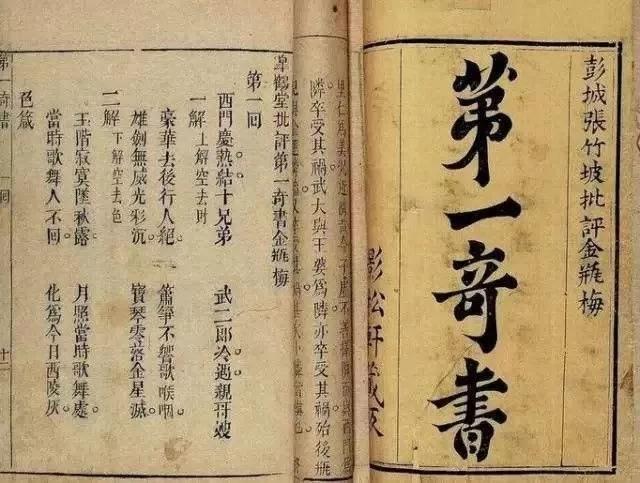 彭城張竹坡批評金瓶梅
第一奇書
影松軒藏板
隣卒受其禍武大與王婆為隣亦卒受其禍殆後瓶
臯鶴堂批評第一奇書金瓶梅
第一回
西門慶熱結十兄弟　武二郎冷遇親哥嫂
一解　上解空去財
豪華去後行人絕。　簫箏不響歌喉咽。
雄劍無威光彩沉。　寶琴零落金星滅
二解　下解空去色
玉階寂寞墜秋露。　月照當時歌舞處
當時歌舞人不回。　化為今日西陵灰。
色箴
第一奇書　回